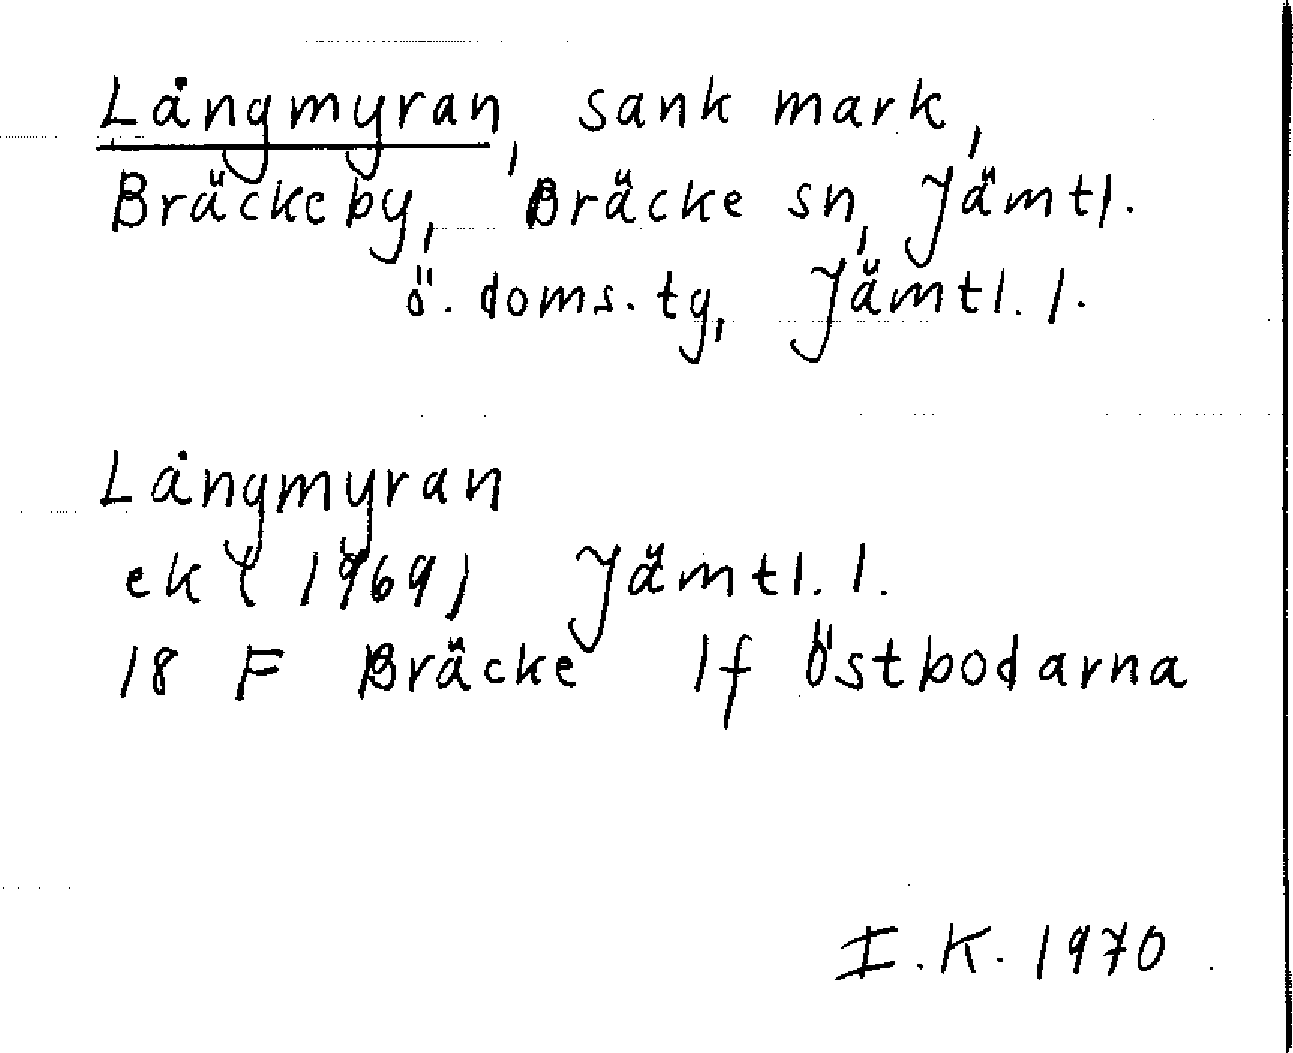 Långmyran, sank mark,
Bräckeby, Bräcke sn, Jämtl.
ö. doms. tg, Jämtl. l.
Långmyran
ek (1969) Jämtl. l.
18 F Bräcke 1f Östbodarna
I.K. 1970